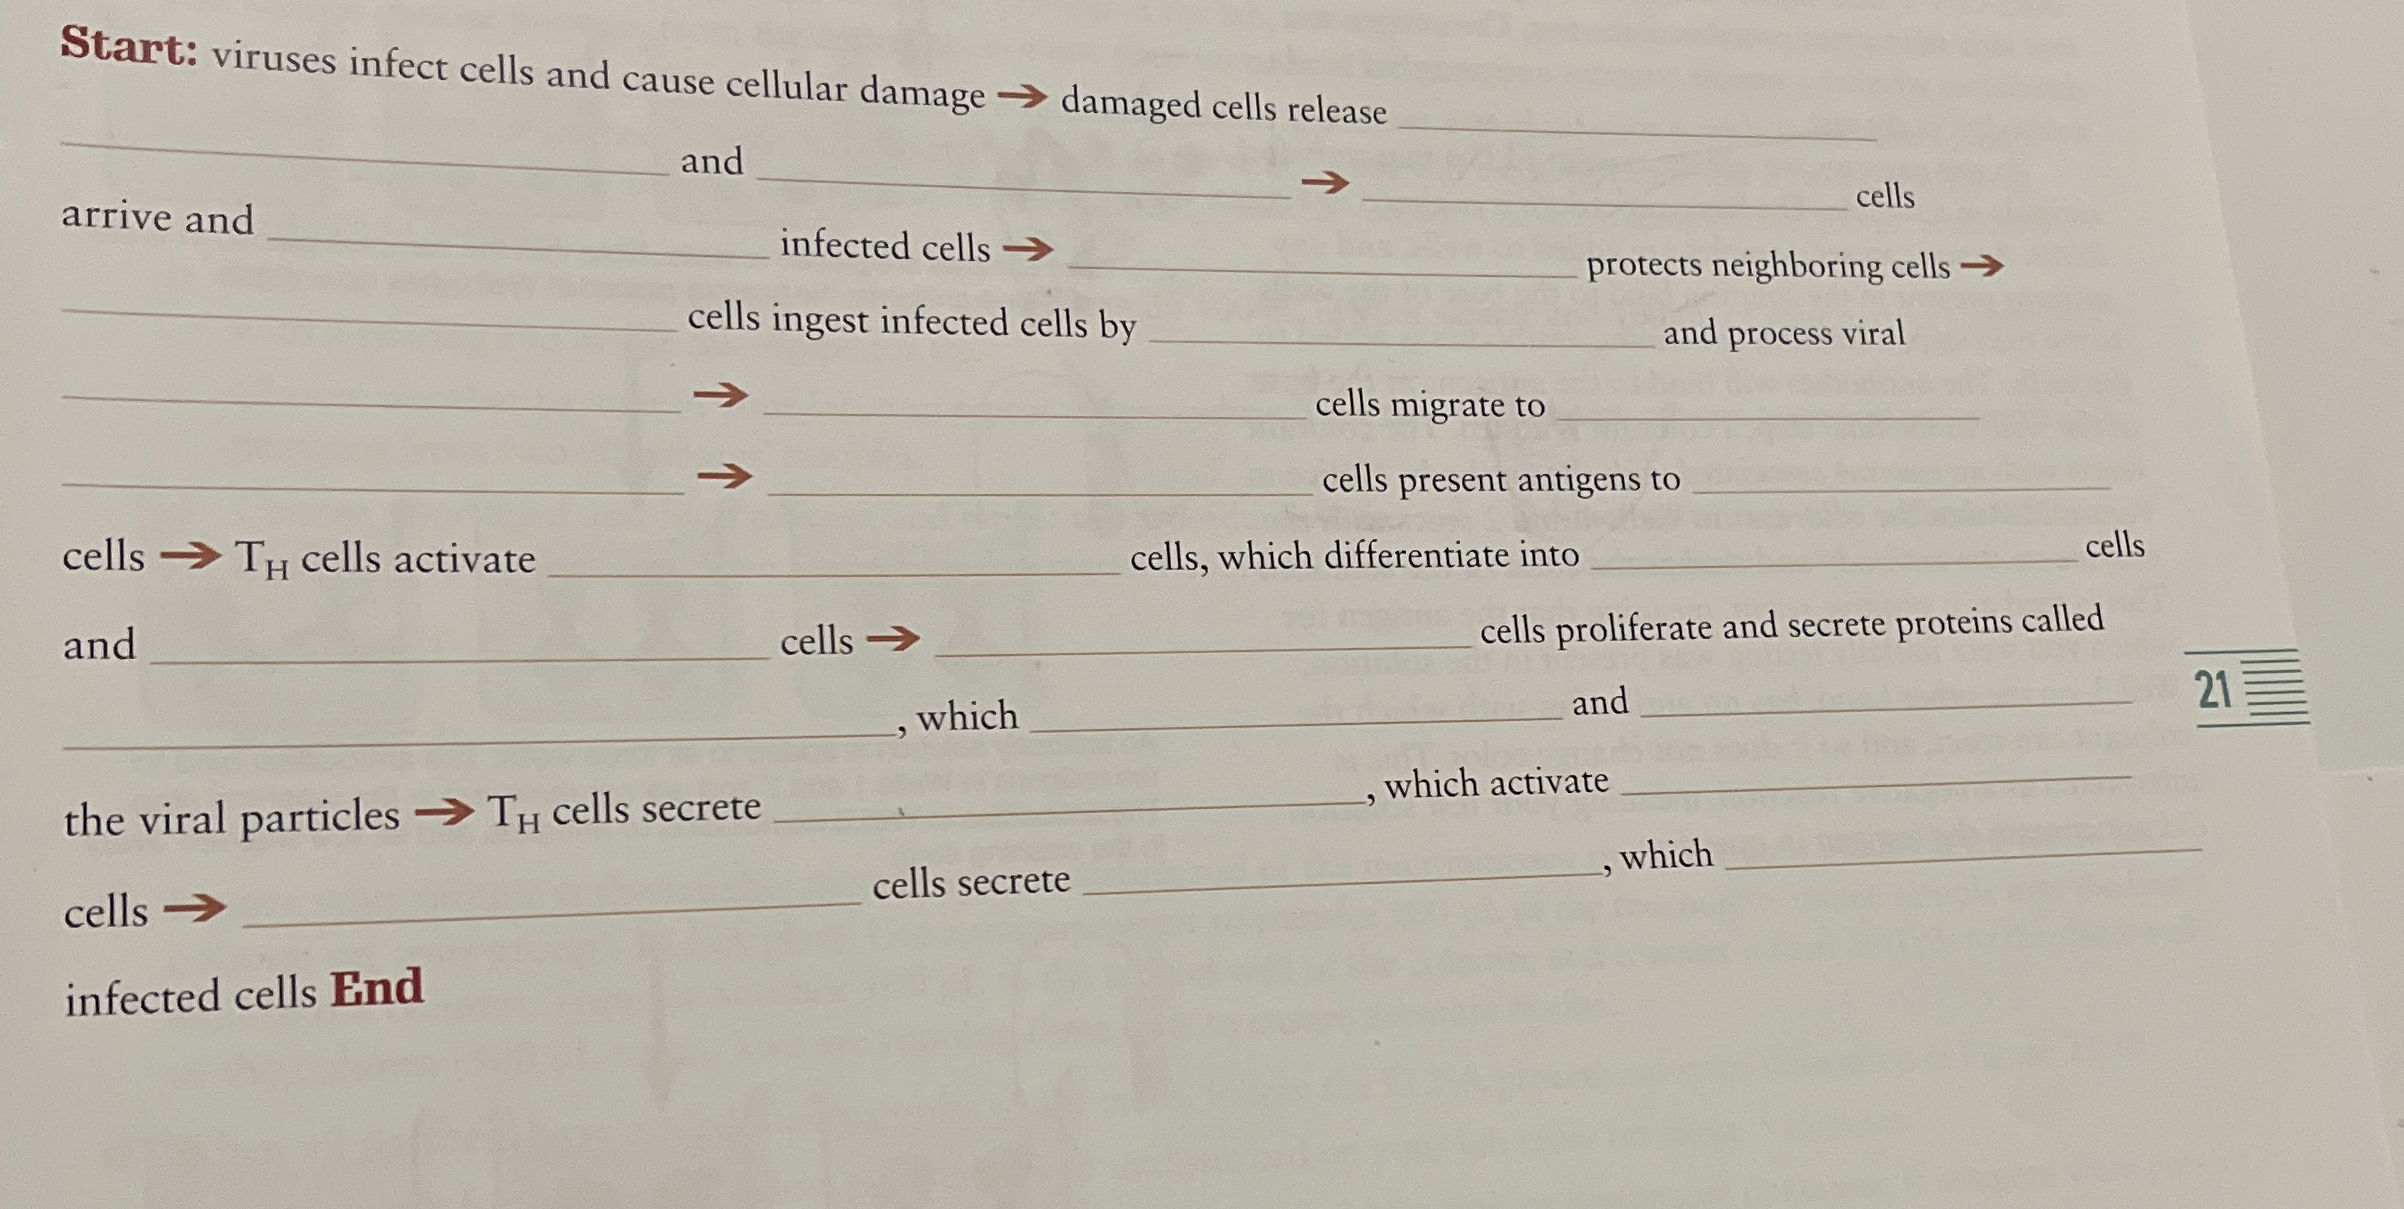 Start: viruses infect cells and cause cellular damage → damaged cells release
and → cells
arrive and infected cells → protects neighboring cells →
cells ingest infected cells by and process viral
→ cells migrate to
→ cells present antigens to
cells → TH cells activate cells, which differentiate into cells
and cells → cells proliferate and secrete proteins called
, which and
the viral particles → TH cells secrete , which activate
cells → cells secrete , which
infected cells End
21